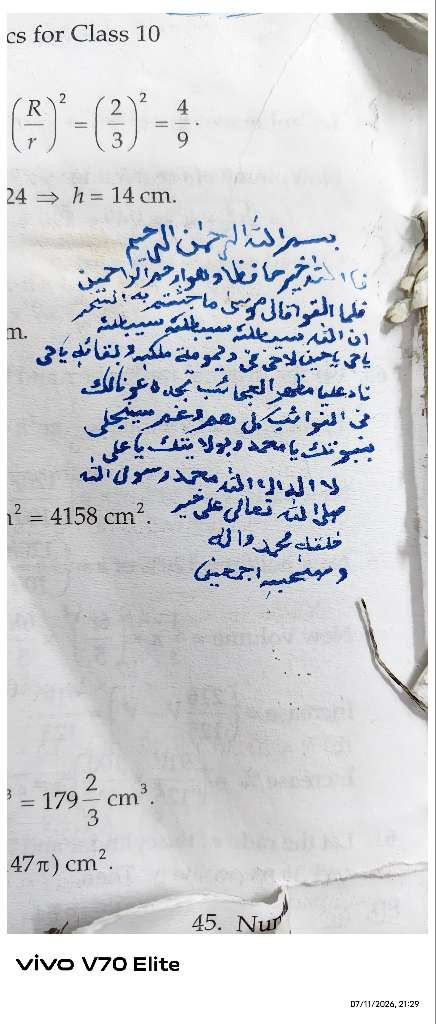 cs for Class 10
(R/r)² = (2/3)² = 4/9
24 ⇒ h = 14 cm.
بسم الله الرحمن الرحيم
فالله خير حافظا وهو ارحم الراحمين
فلما القوا قال موسى ما جئتم به السحر
ان الله سيبطله سيبطله سيبطله
m.
ياحي ياحين لاحي في ديمومة ملكه وبقائه ياحي
ناد عليا مظهر العجائب تجده عونا لك
في النوائب كل هم وغم سينجلي
بنبوتك يا محمد وبولايتك يا علي
لا اله الا الله محمد رسول الله
n² = 4158 cm².
صلى الله تعالى على خير
خلقه محمد واله
وصحبه اجمعين
³ = 179 2/3 cm³.
47π) cm².
45. Nur
vivo V70 Elite
07/11/2026, 21:29